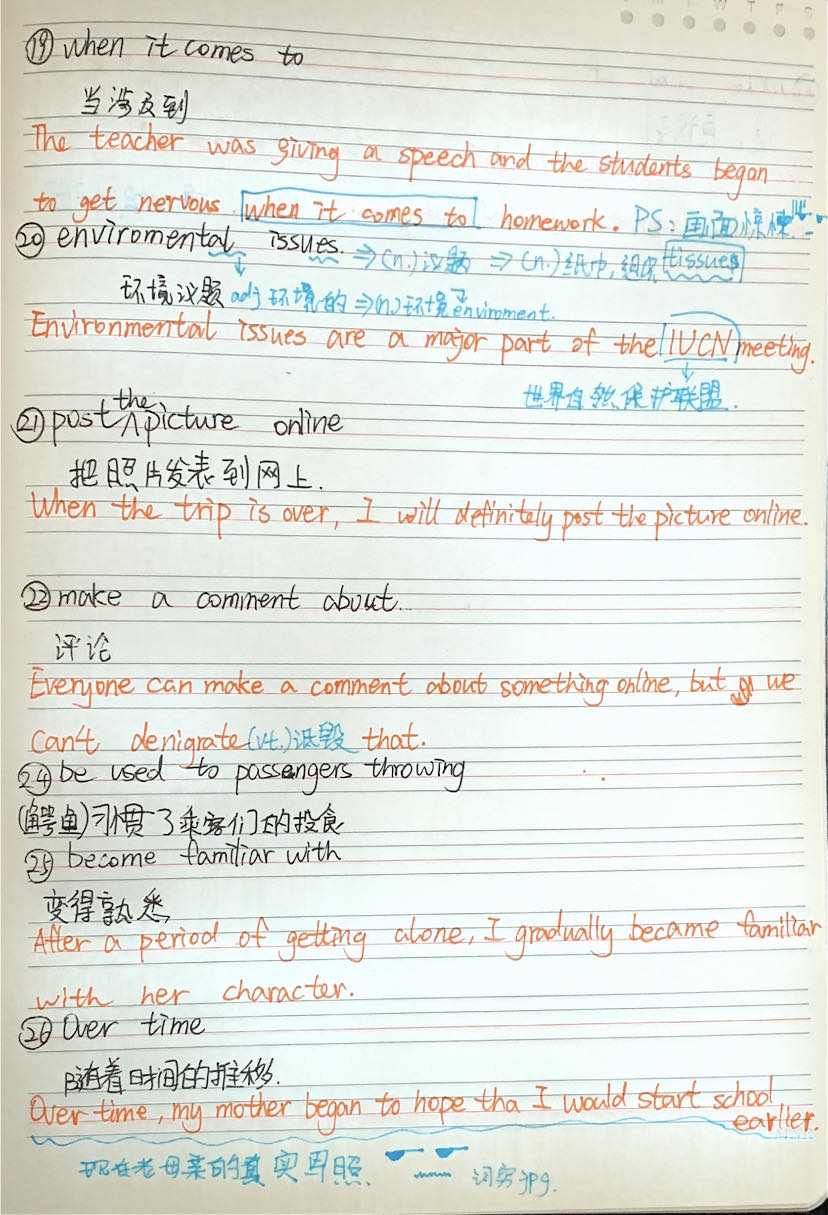 ⑲ when it comes to
当涉及到
The teacher was giving a speech and the students began
to get nervous when it comes to homework. PS: 画面惊悚!!
⑳ enviromental issues. ⇒ (n.) 议题 ⇒ (n.) 纸巾, 组织 tissues
环境议题 adj 环境的 ⇒ (n.) 环境 enviroment.
Environmental issues are a major part of the IUCN meeting.
世界自然保护联盟.
㉑ post the picture online
把照片发表到网上.
When the trip is over, I will definitely post the picture online.
㉒ make a comment about...
评论
Everyone can make a comment about something online, but we
can't denigrate (vt.) 诋毁 that.
㉔ be used to passengers throwing
(鳄鱼) 习惯了乘客们的投食
㉕ become familiar with
变得熟悉
After a period of getting alone, I gradually became familiar
with her character.
㉖ Over time
随着时间的推移.
Over time, my mother began to hope tha I would start school
earlier.
现在老母亲的真实写照. 词穷jpg.